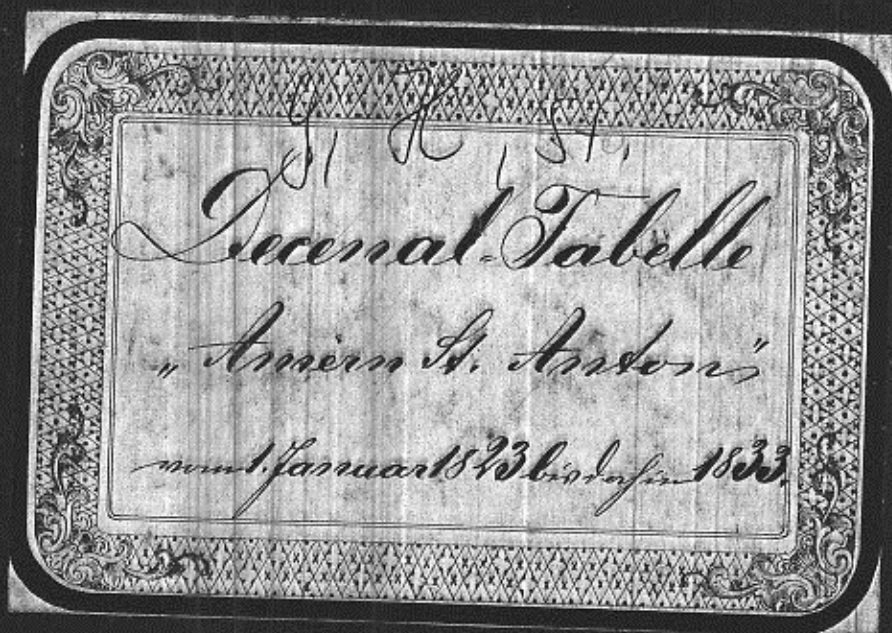 G, H, St.
Decenal-Tabelle
„Amern St. Anton"
vom 1. Januar 1823 bis dahin 1833.